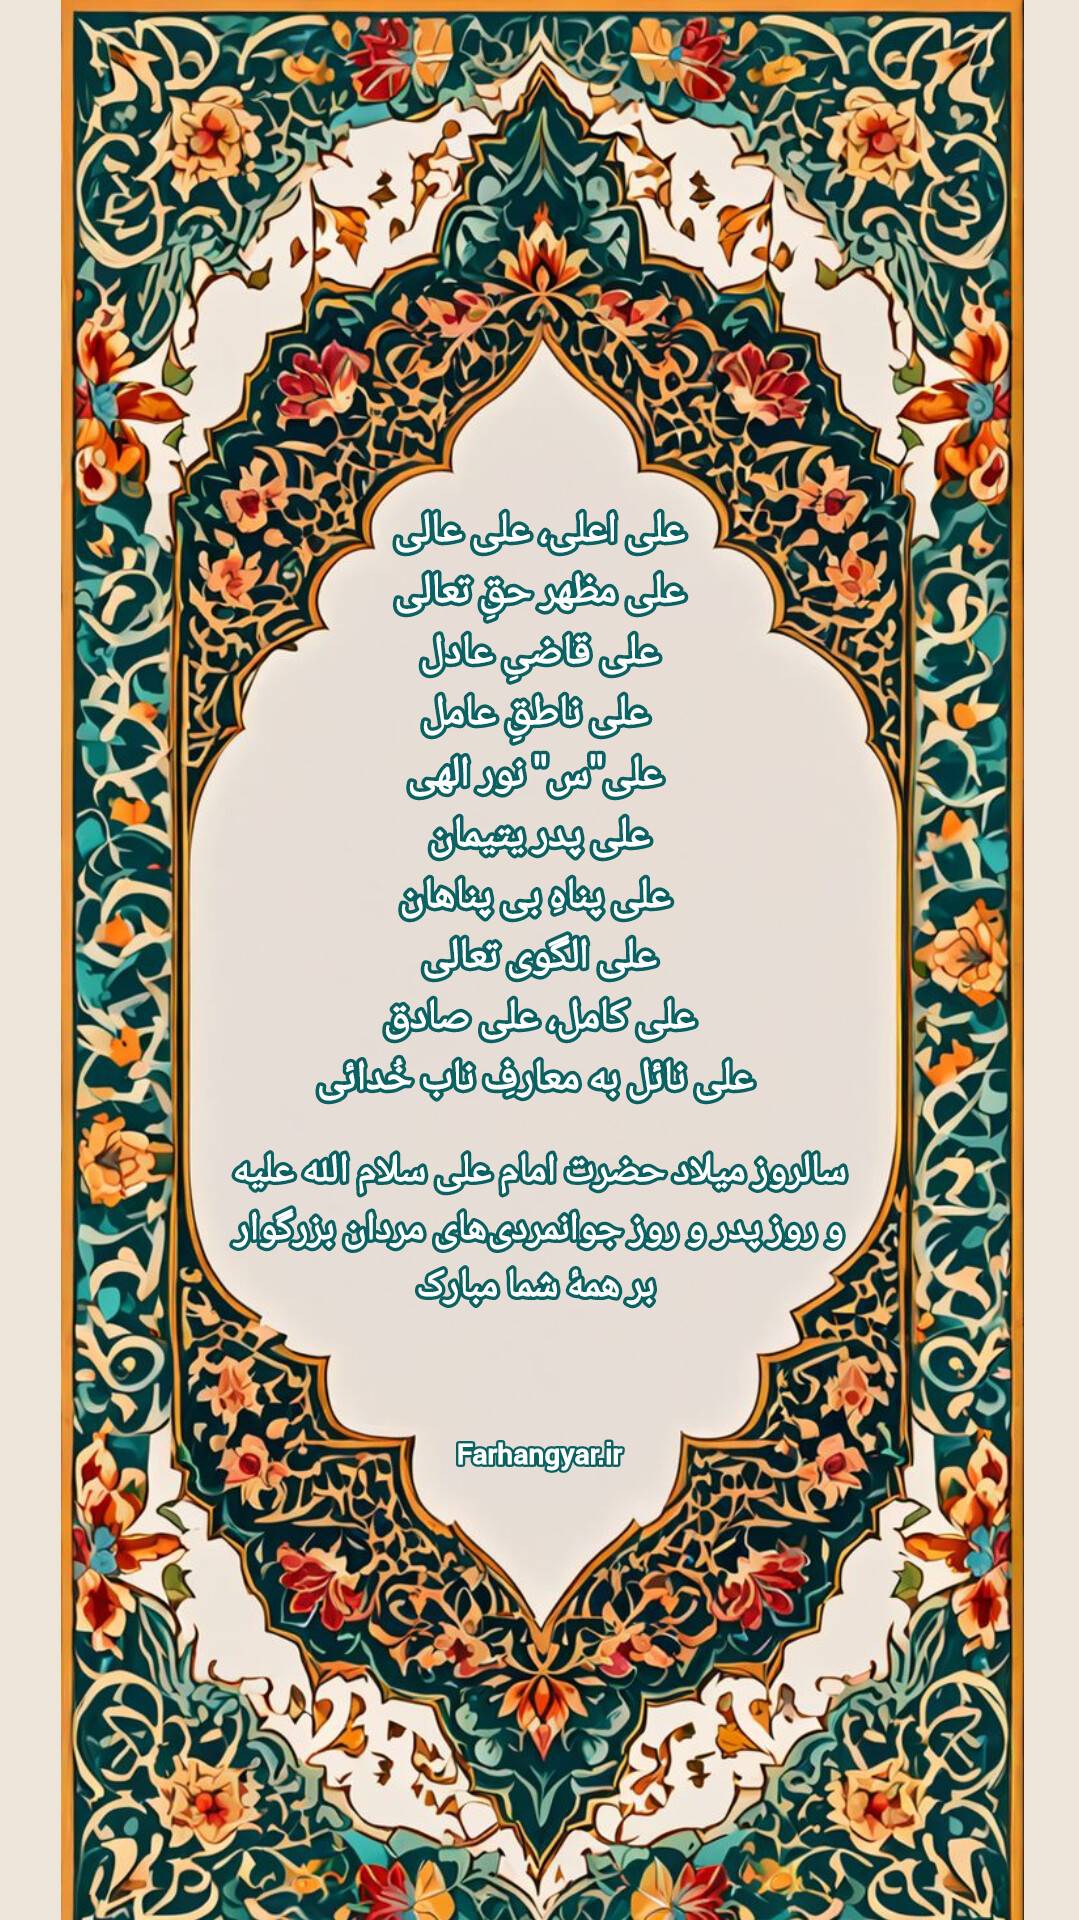 علی اعلی، علی عالی
علی مظهر حقِ تعالی
علی قاضیِ عادل
علی ناطقِ عامل
علی"س" نور الهی
علی پدر یتیمان
علی پناهِ بی پناهان
علی الگوی تعالی
علی کامل، علی صادق
علی نائل به معارفِ ناب خُدائی
سالروز میلاد حضرت امام علی سلام الله علیه
و روز پدر و روز جوانمردی‌های مردان بزرگوار
بر همهٔ شما مبارک
Farhangyar.ir